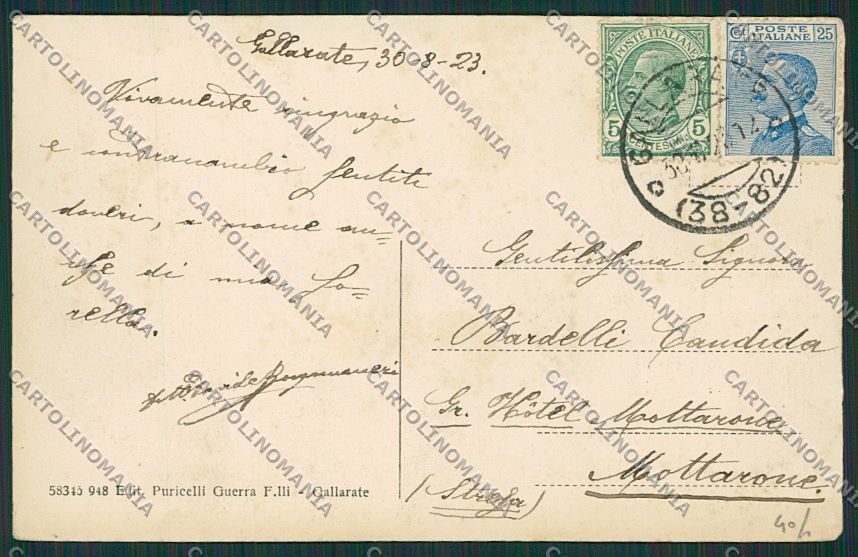 Gallarate, 30-8-23.
Vivamente ringrazio
e contracambio sentiti
doveri, a nome an-
che di mia so-
rella.
58345 948 Edit. Puricelli Guerra F.lli - Gallarate
POSTE ITALIANE
5 5
CENTESIMI
POSTE
ITALIANE 25
(38-82)
Gentilissima Signora
Bardelli Candida
Gr. Hôtel Mottarone
Mottarone.
(Stresa)
CARTOLINOMANIA